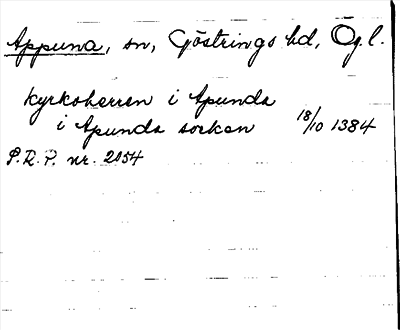 Appuna, sn, Göstrings hd, Ög.l.
Kyrkoherren i Apunda
i Apunda socken 18/10 1384
P.R.P. nr. 2054